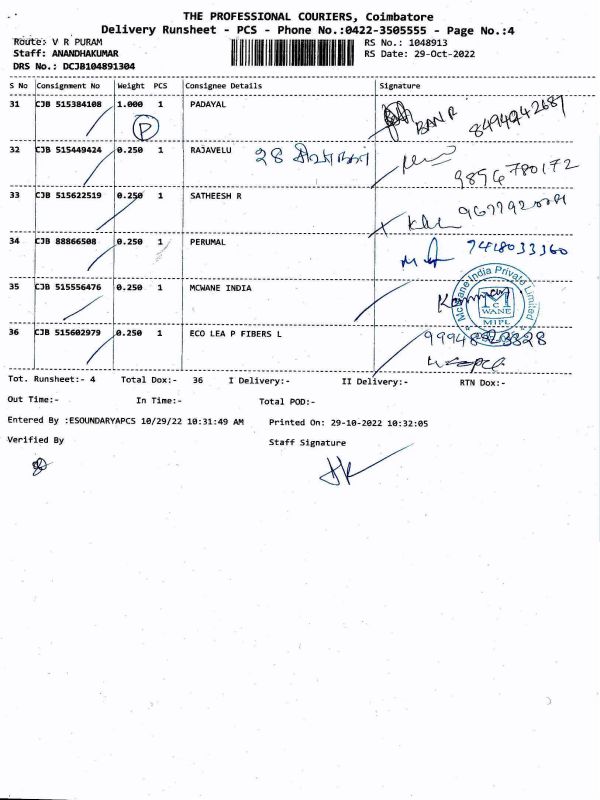 THE PROFESSIONAL COURIERS, Coimbatore
Delivery Runsheet - PCS - Phone No.:0422-3505555 - Page No.:4
Route: V R PURAM
RS No.: 1048913
Staff: ANANDHAKUMAR
RS Date: 29-Oct-2022
DRS No.: DCJB104891304
S No Consignment No Weight PCS Consignee Details Signature
31 CJB 515384108 1.000 1 PADAYAL
BANR 8494942687
P
32 CJB 515449424 0.250 1 RAJAVELU 28
9856780172
33 CJB 515622519 0.250 1 SATHEESH R
34 CJB 88866508 0.250 1 PERUMAL
7418033360
35 CJB 515556476 0.250 1 MCWANE INDIA
McWane India Private Limited
MCWANE
MIPL
36 CJB 515602979 0.250 1 ECO LEA P FIBERS L
Tot. Runsheet:- 4 Total Dox:- 36 I Delivery:- II Delivery:- RTN Dox:-
Out Time:- In Time:- Total POD:-
Entered By :ESOUNDARYAPCS 10/29/22 10:31:49 AM Printed On: 29-10-2022 10:32:05
Verified By Staff Signature